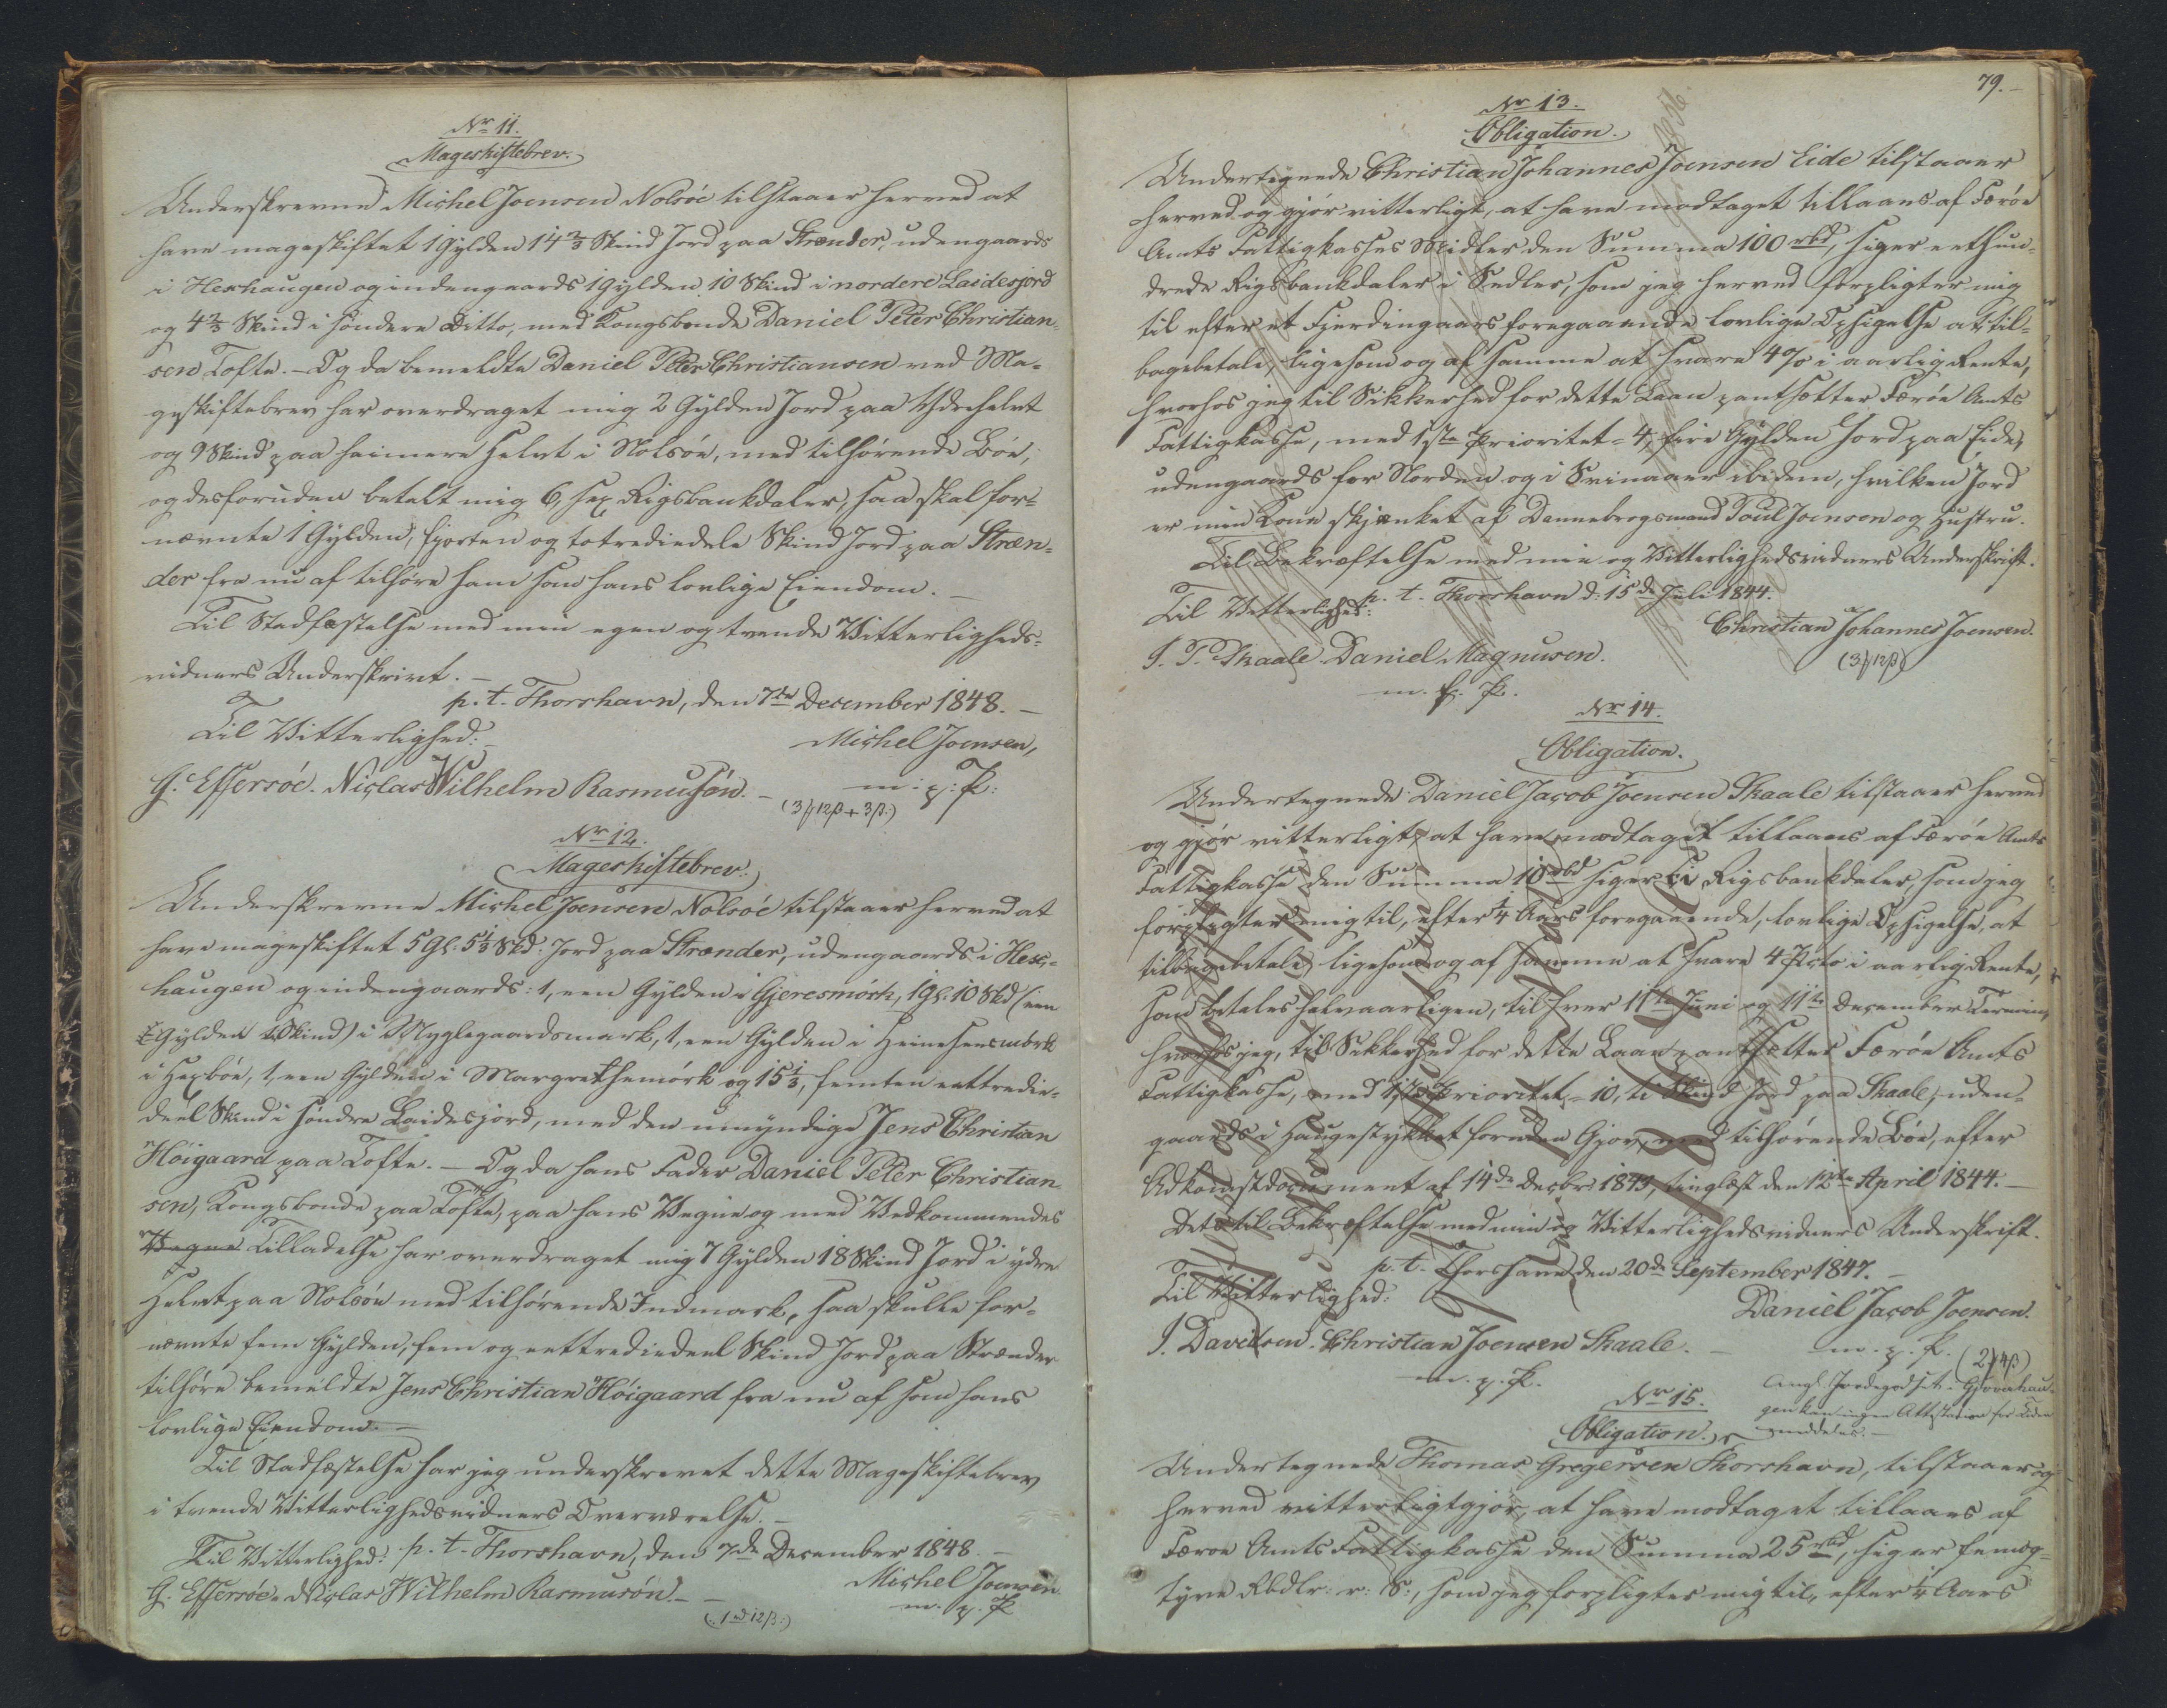 Nr 11.
Mageskiftebrev.
Underskrevne Michel Joensen Nolsöe tilstaaer herved at
have mageskiftet 1 Gylden 14 2/3 Skind Jord paa Strænder, udengaards
i Hexhaugen og indengaards 1 Gylden 10 Skind i nordere Laidesjord
og 4 2/3 Skind i söndere Ditto, med Kongsbonde Daniel Peter Christian-
sen Tofte. - Og da bemeldte Daniel Peter Christiansen ved Ma-
geskiftebrev har overdraget mig 2 Gylden Jord paa Ydrehelvt
og 9 Skind paa heimere Helvt i Nolsöe, med tilhörende Böe,
og desforuden betalt mig 6, sex Rigsbankdaler, saa skal for-
nævnte 1 Gylden, fjorten og totrediedele Skind Jord paa Stræn-
der fra nu af tilhöre ham som hans lovlige Eiendom. -
Til Stadfæstelse med min egen og tvende Vitterligheds-
vidners Underskrivt. -
p. t. Thorshavn, den 7de December 1848. -
Til Vitterlighed: -
Michel Joensen,
G. Effersöe. Niclas Wilhelm Rasmusön. -
m: p: P:
(3 f 12 β + 3 β.)
Nr 12.
Mageskiftebrev.
Underskrevne Michel Joensen Nolsöe tilstaaer herved at
have mageskiftet 5 Gl. 5 1/3 Skd. Jord paa Strænder, udengaards i Hex-
haugen og indengaards: 1, een Gylden i Gjeresmörk, 1 Gl. 10 Skd (een
Gylden Skind) i Myglegaardsmark, 1, een Gylden i Heinesensmörk
i Hexböe, 1, een Gylden i Margrethemörk og 15 1/3, femten eettredie-
deel Skind i söndre Laidesjord, med den umyndige Jens Christian
Höigaard paa Tofte. - Og da hans Fader Daniel Peter Christian-
sen, Kongsbonde paa Tofte, paa hans Vegne og med Vedkommendes
Vegne Tilladelse har overdraget mig 7 Gylden 18 Skind Jord i ydre
Helvt paa Nolsöe med tilhörende Indmark, saa skulle for-
nævnte fem Gylden, fem og eettrediedeel Skind Jord paa Strænder
tilhöre bemeldte Jens Christian Höigaard fra nu af som hans
lovlige Eiendom. -
Til Stadfæstelse har jeg underskrevet dette Mageskiftebrev
i tvende Vitterlighedsvidners Overværelse. -
p. t. Thorshavn, den 7de December 1848. -
Til Vitterlighed:
Michel Joensen.
G. Effersöe. Niclas Wilhelm Rasmusön. -
m. p. P
79. -
Nr 13.
Obligation.
Undertegnede Christian Johannes Joensen Eide tilstaaer
herved og gjör vitterligt, at have modtaget tillaans af Færöe
Amts Fattigkasses Midler den Summa 100 rbd, siger eethun-
drede Rigsbankdaler i Sedler, som jeg herved forpligter mig
til efter et Fjerdingaars foregaaende lovlige Opsigelse at til-
bagebetale, ligesom og af samme at svare 4 % i aarlig Rente,
hvorhos jeg til Sikkerhed for dette Laan pantsætter Færöe Amts
Fattigkasse, med 1ste Prioritet = 4, fire Gylden Jord paa Eide,
udengaards for Norden og i Svinaaer ibidem, hvilken Jord
er min Kone skjænket af Dannebrogsmand Poul Joensen og Hustru.
Til Bekræftelse med min og Vitterlighedsvidners Underskrift.
p. t. Thorshavn d: 15de Juli 1844.
Til Vitterlighed:
Christian Johannes Joensen.
J. P. Skaale Daniel Magnusen.
(3 f 12 β)
m. f. P.
Nr 14.
Obligation.
Undertegnede Daniel Jacob Joensen Skaale tilstaaer herved
og gjör vitterligt, at have modtaget tillaans af Færöe Amts
Fattigkasse den Summa 10 rbd siger ti Rigsbankdaler, som jeg
forpligter mig til, efter 1/4 Aars foregaaende, lovlige Opsigelse, at
tilbagebetale, ligesom og af samme at svare 4 Pcto i aarlig Rente,
som betales halvaarligen, til hver 11te Juni og 11te December Termin,
hvorhos jeg, til Sikkerhed for dette Laan pantsætter Færöe Amts
Fattigkasse, med 1ste Prioritet, = 10, ti Skind Jord paa Skaale, uden-
gaards i Haugestykket foruden Gjov, med tilhörende Böe, efter
Adkomstdocument af 14de Decbr: 1843, tinglæst den 12te April 1844. -
Dets til Bekræftelse med min og Vitterlighedsvidners Underskrift.
p. t. Thorshavn den 20de September 1847. -
Til Vitterlighed:
Daniel Jacob Joensen.
J. Davidsen. Christian Joensen Skaale. -
m. p. P. (2 f 4 β)
m. p. P.
Nr 15.
Obligation.
Undertegnede Thomas Gregersen Thorshavn, tilstaaer og
herved vitterligtgjör, at have modtaget tillaans af
Færöe Amts Fattigkasse den Summa 25 rbd, siger femog-
tyve Rbdlr: r: S:, som jeg forpligter mig til, efter 1/4 Aars